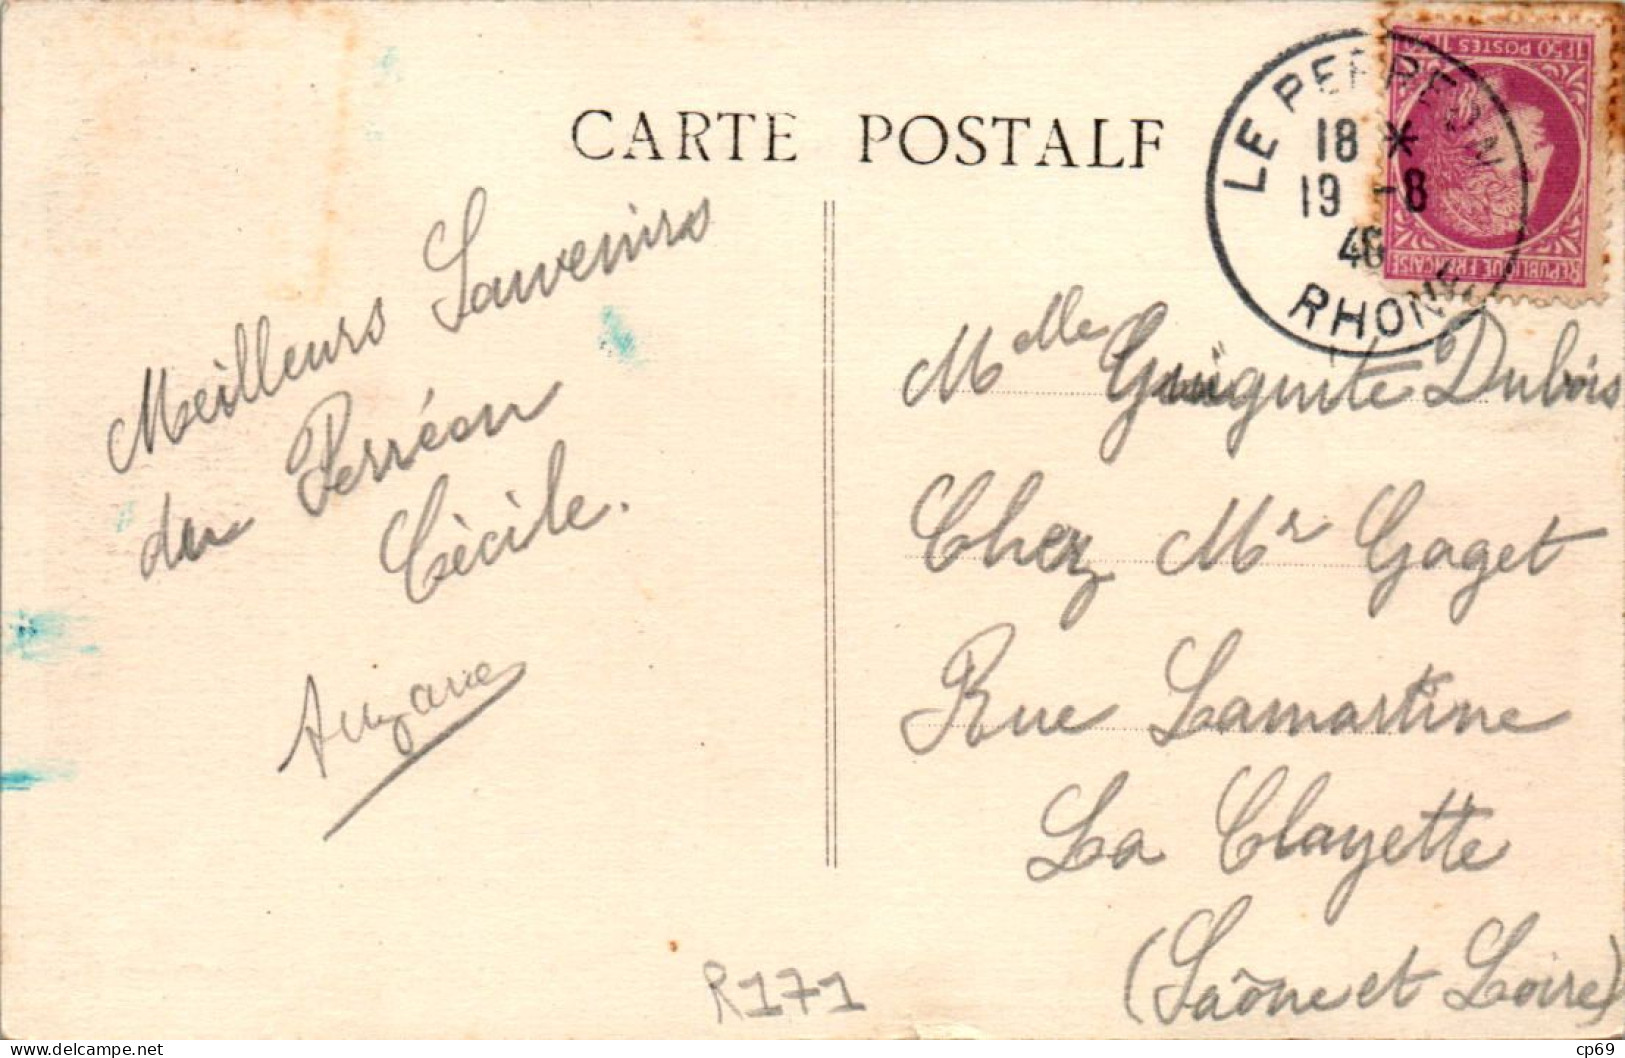 CARTE POSTALE
LE PERRÉON
18 *
19 -8
46
RHONE
1F50 POSTES 1F50
REPUBLIQUE FRANÇAISE
Meilleurs Souvenirs
du Perréon
Cècile.
Mdlle Guiguite Dubois
Chez Mr Gaget
Rue Lamartine
La Clayette
(Saône et Loire)
R171
cp69
www.delcampe.net